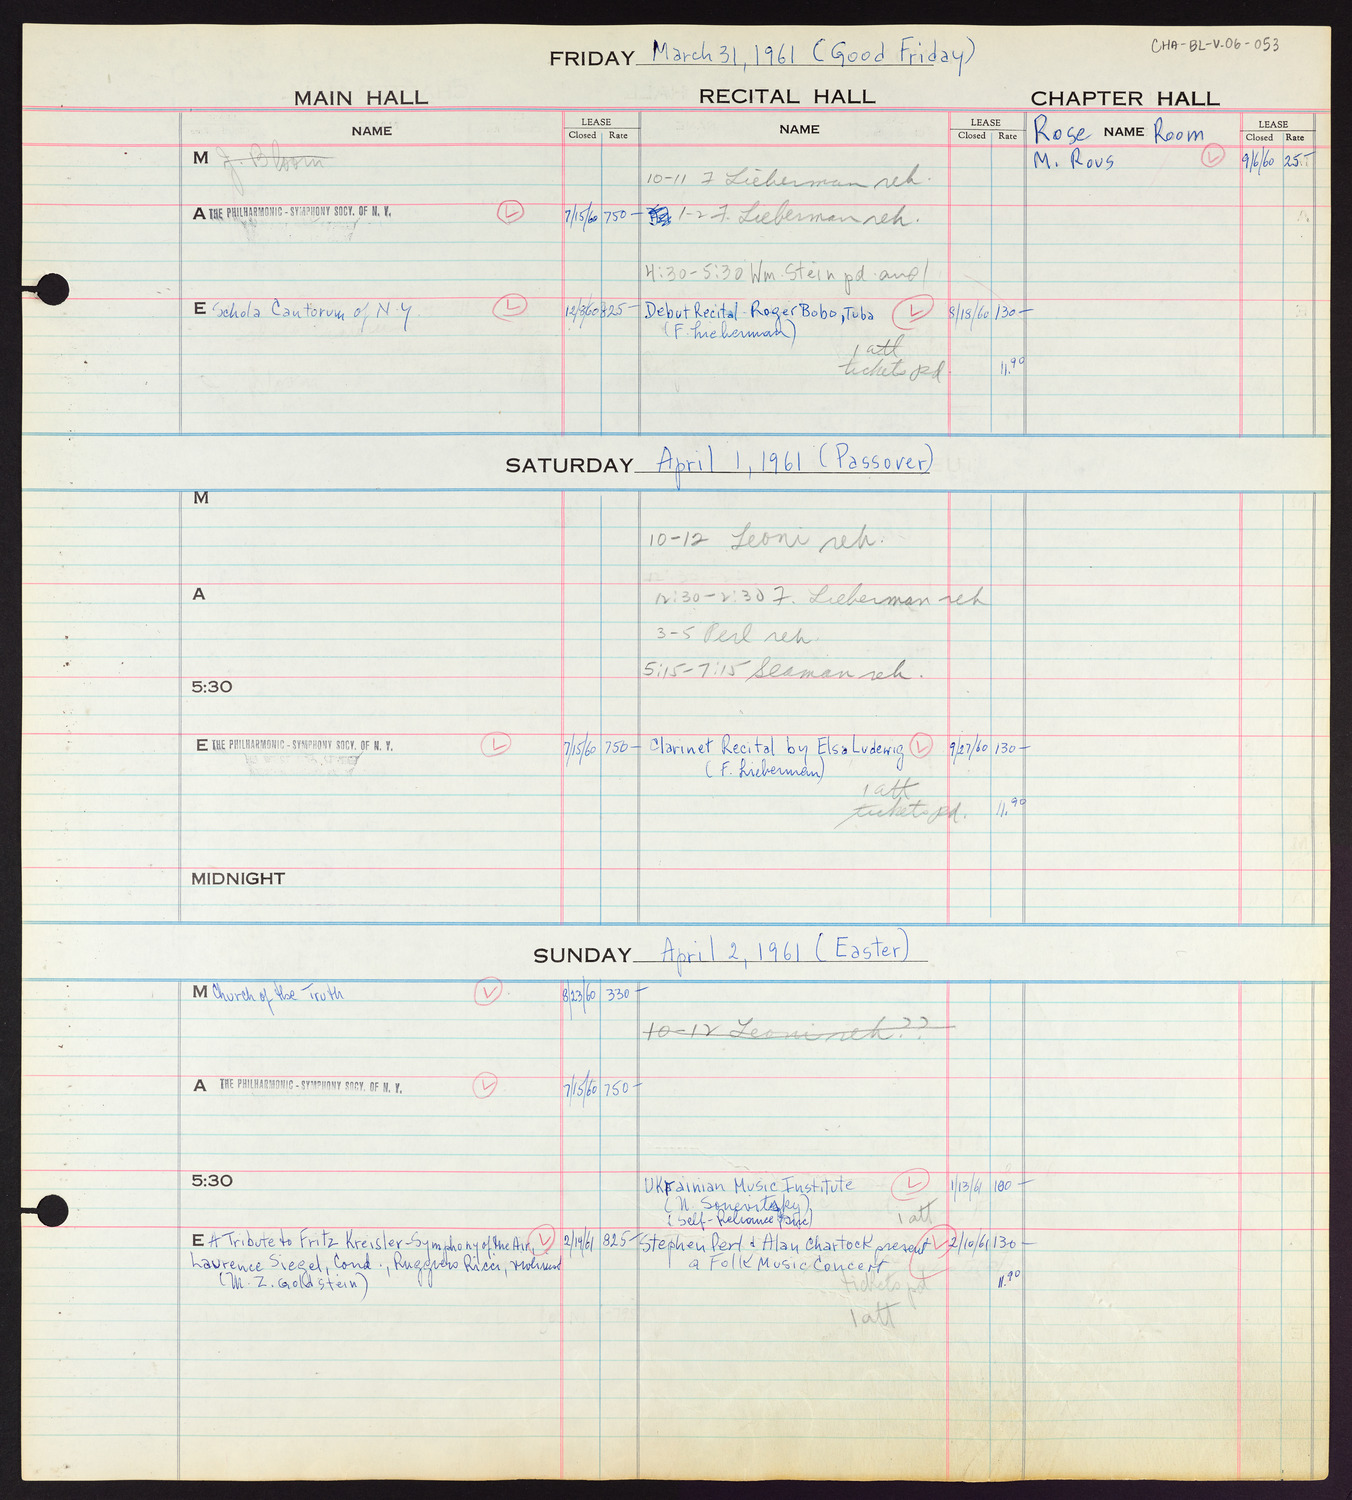 CHA-BL-V-06-053
FRIDAY March 31, 1961 (Good Friday)
MAIN HALL RECITAL HALL CHAPTER HALL
NAME LEASE Closed Rate NAME LEASE Closed Rate Rose NAME Room LEASE Closed Rate
M J. Bloom M. Rovs 9/6/60 25.-
10-11 F Lieberman reh.
A THE PHILHARMONIC-SYMPHONY SOCY. OF N. Y. 7/15/60 750- 1-2 F. Lieberman reh.
4:30-5:30 Wm. Stein pd aud
E Schola Cantorum of N-Y 12/3/60 825- Debut Recital-Roger Bobo, Tuba 8/18/60 130-
(F. Lieberman)
1 att
tickets pd 11.90
SATURDAY April 1, 1961 (Passover)
M
10-12 Leoni reh.
A 12:30-2:30 F. Lieberman reh
3-5 Perl reh.
5:15-7:15 Seaman reh.
5:30
E THE PHILHARMONIC-SYMPHONY SOCY. OF N. Y. 7/15/60 750- Clarinet Recital by Elsa Ludewig 9/27/60 130-
(F. Lieberman)
1 att
tickets pd. 11.90
MIDNIGHT
SUNDAY April 2, 1961 (Easter)
M Church of the Truth 8/23/60 330-
10-12 Leoni reh??
A THE PHILHARMONIC-SYMPHONY SOCY. OF N. Y. 7/15/60 750-
5:30 Ukrainian Music Institute 1/13/61 180-
(Self-Reliance 1 att
E A Tribute to Fritz Kreisler-Symphony of the Air, 2/14/61 825- Stephen Perl & Alan Chartock present 2/10/61 130-
Lawrence Siegel, Cond., Ruggiero Ricci, Violinist a Folk Music Concert
(M. Z. Goldstein) tickets pd 11.90
1 att